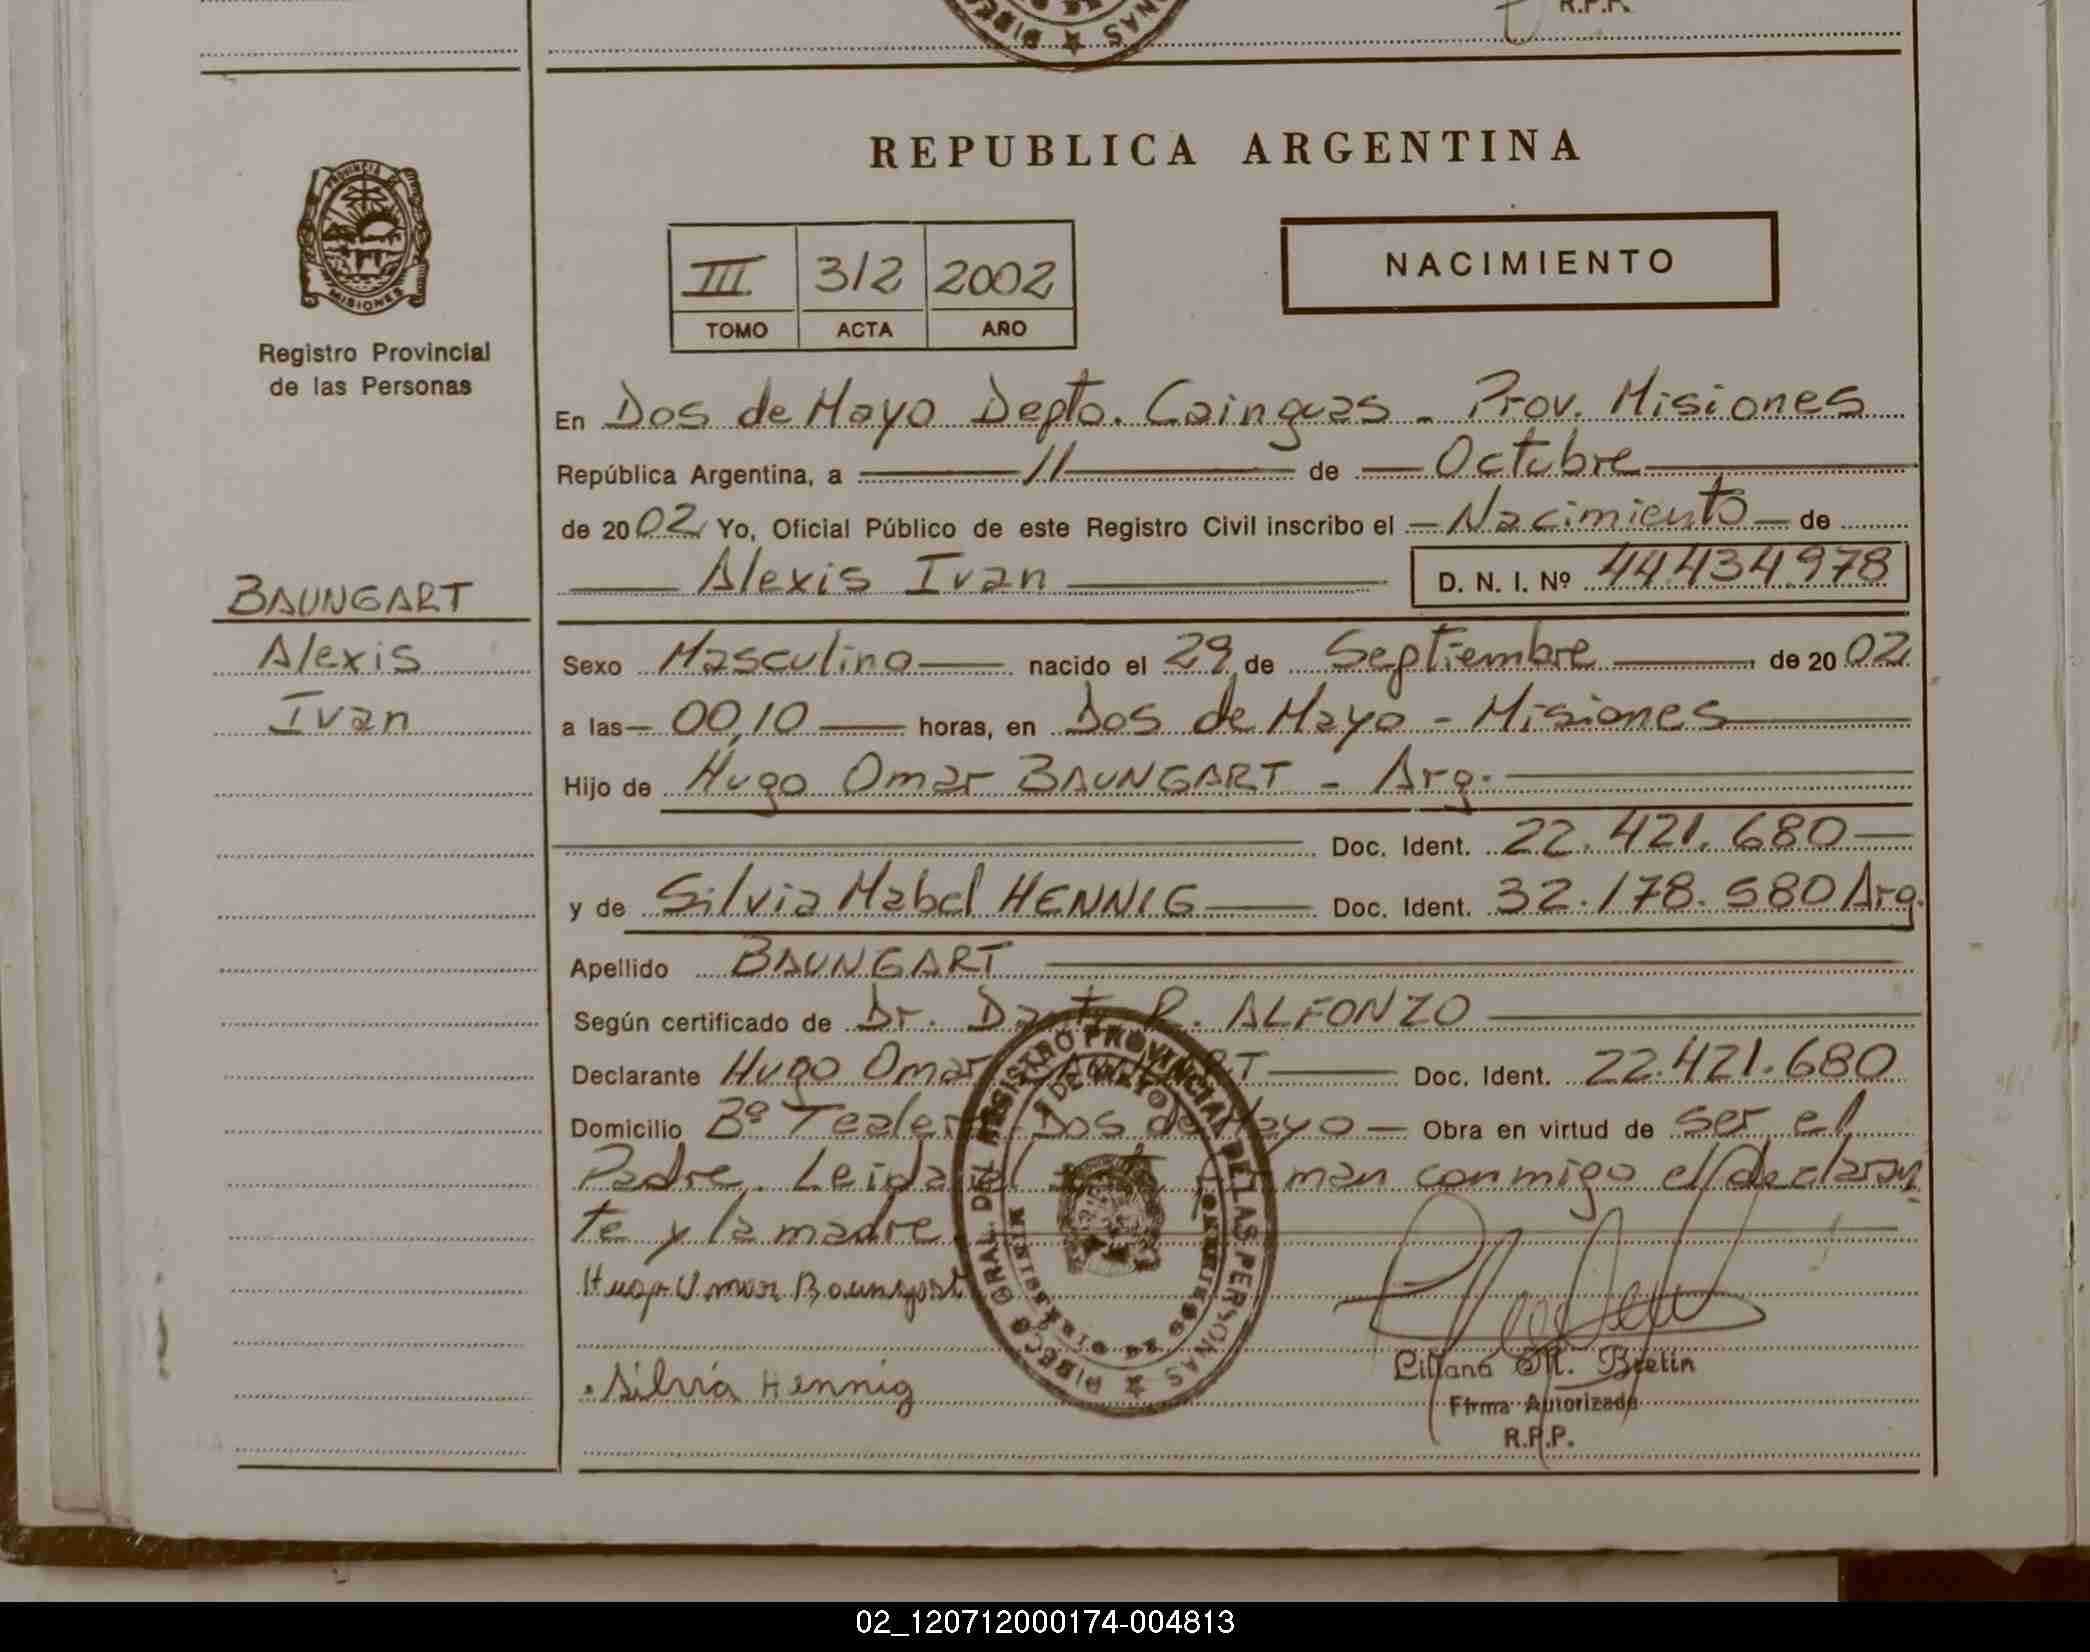 R.P.P.
REPUBLICA ARGENTINA
PROVINCIA DE
MISIONES
Registro Provincial
de las Personas
III 312 2002
TOMO ACTA AÑO
NACIMIENTO
En Dos de Mayo Depto. Cainguas - Prov. Misiones
República Argentina, a 11 de Octubre
de 2002 Yo, Oficial Público de este Registro Civil inscribo el Nacimiento de
Alexis Ivan D. N. I. Nº 44.434.978
BAUNGART
Alexis
Ivan
Sexo Masculino nacido el 29 de Septiembre de 2002
a las 00,10 horas, en Dos de Mayo - Misiones
Hijo de Hugo Omar BAUNGART - Arg.
Doc. Ident. 22.421.680
y de Silvia Mabel HENNIG Doc. Ident. 32.178.580 Arg.
Apellido BAUNGART
Según certificado de Dr. R. ALFONZO
Declarante Hugo Omar Doc. Ident. 22.421.680
Domicilio Bº Dos de Mayo Obra en virtud de ser el
Padre. Leida el conmigo el declaran
te y la madre.
Hugo Omar Baungart
Silvia Hennig
REGISTRO PROVINCIAL DE LAS PERSONAS
Liliana M. Brelin
Firma Autorizada
R.P.P.
02_120712000174-004813